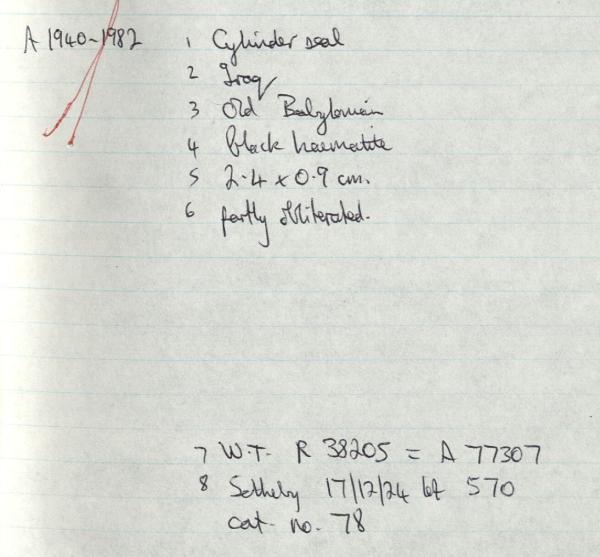 A 1940-1982 1 Cylinder seal
2 Iraq
3 Old Babylonian
4 black haematite
5 2.4 x 0.9 cm.
6 partly obliterated.
7 W.T. R 38205 = A 77307
8 Sotheby 17/12/24 lot 570
cat. no. 78